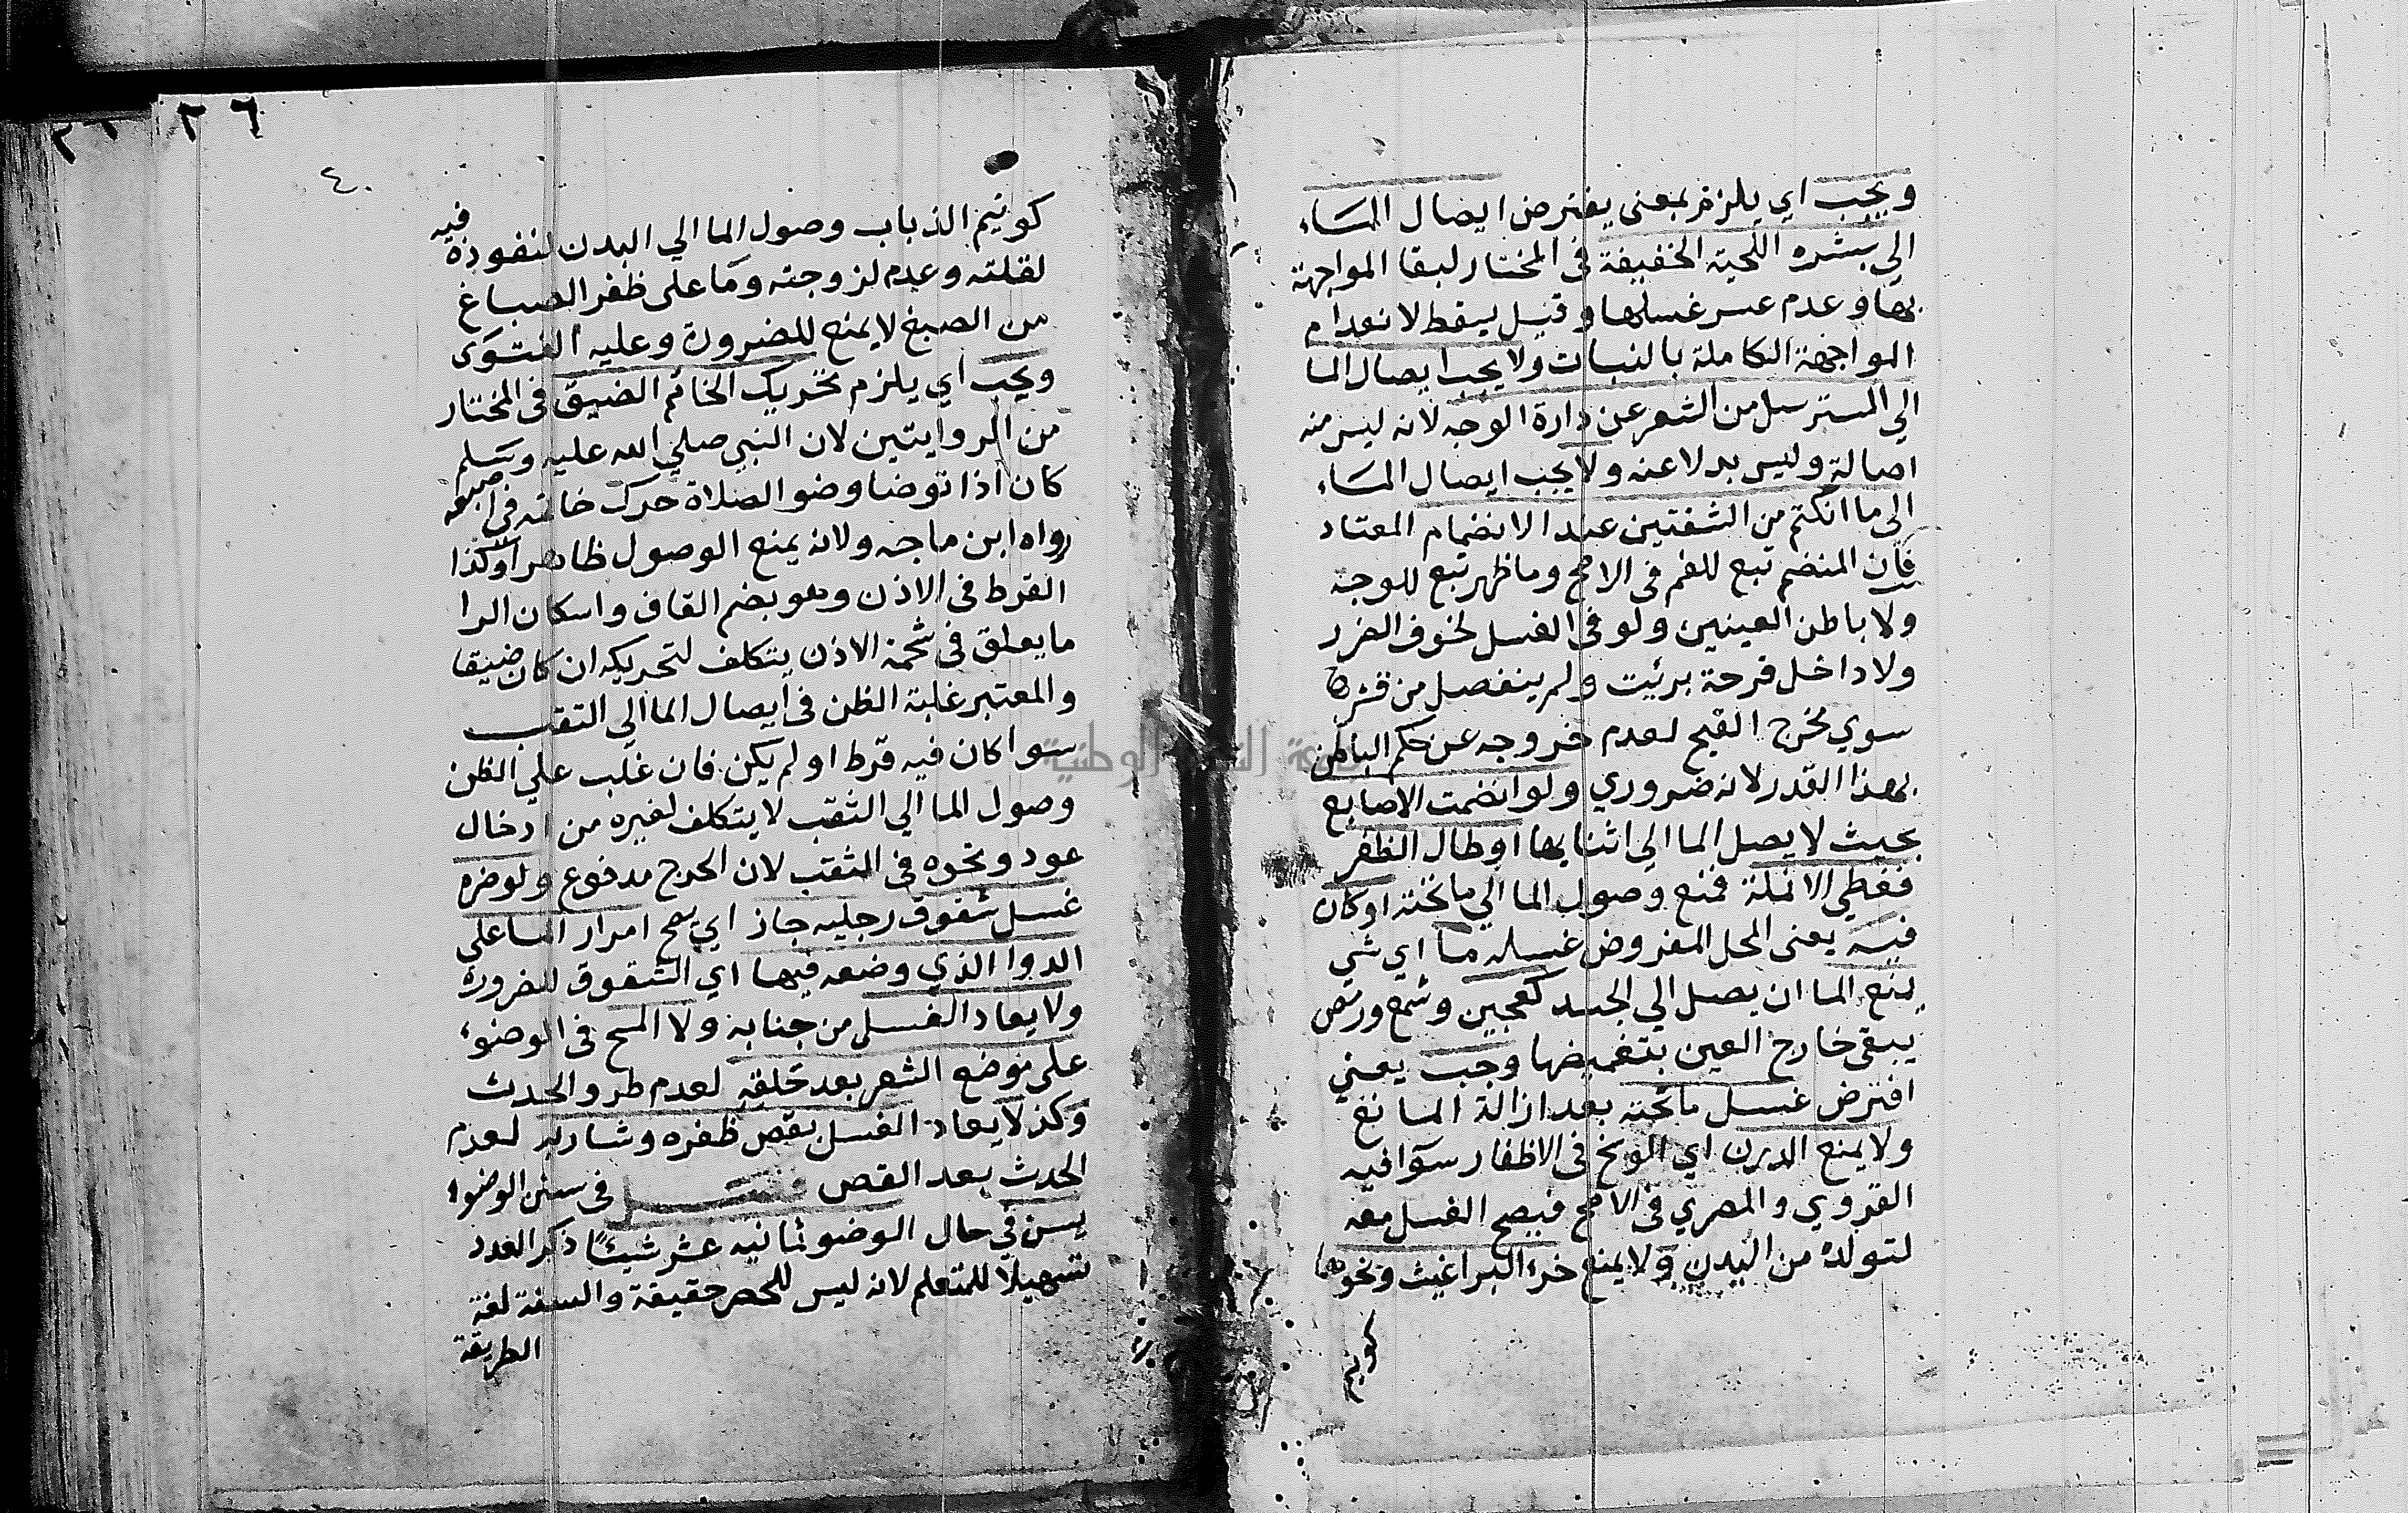 ويجب اي يلزم بمعنى يفترض ايصال الماء
الي بشره اللحية الخفيفة فى المختار لبقا المواجهة
بها وعدم عسر غسلها وقيل يسقط لانعدام
المواجهة الكاملة بالنبات ولا يجب ايصال الما
الي المسترسل من الشعر عن دارة الوجه لانه ليس منه
اصالة وليس بدلا عنه ولا يجب ايصال الماء
الى ما انكتم من الشفتين عند الانضمام المعتاد
فان المنضم تبع للفم فى الاصح وما ظهر تبع للوجه
ولا باطن العينين ولو فى الغسل لخوف الضرر
ولا داخل قرحة برئيت ولم ينفصل من قشرها
سوي مخرج القيح لعدم خروجه عن حكم الباطن
بهذا القدر لانه ضروري ولو انضمت الاصابع
بحيث لا يصل الما الى اثنايها او طال الظفر
فغطي الانملة فمنع وصول الما الي ما تحته او كان
فيه يعنى المحل المفروض غسله ما اي شي
يمنع الما ان يصل الي الجسد كعجين وشمع ورمص
يبقى خارج العين بتغميضها وجب يعني
افترض غسل ما تحته بعد ازالة المانع
ولا يمنع الدرن اي الوسخ فى الاظفار سوا فيه
القروي والمصري فى الاصح فيصح الغسل معه
لتولده من البدن ولا يمنع خرء البراغيث ونحوها
كونيم
٢٦
٤٠
كونيم الذباب وصول الما الي البدن لنفوذه فيه
لقلته وعدم لزوجته وما على ظفر الصباغ
من الصبغ لا يمنع للضرورة وعليه الفتوى
ويجب اي يلزم تحريك الخاتم الضيق فى المختار
من الروايتين لان النبي صلي الله عليه وسلم
كان اذا توضا وضو الصلاة حرك خاتمه فى اصبعه
رواه ابن ماجه ولانه يمنع الوصول ظاهرا وكذا
القرط فى الاذن وهو بضم القاف واسكان الرا
ما يعلق فى شحمة الاذن يتكلف لتحريكه ان كان ضيقا
والمعتبر غلبة الظن فى ايصال الما الى الثقب
سوا كان فيه قرط او لم يكن فان غلب علي الظن
وصول الما الي الثقب لا يتكلف لغيره من ادخال
عود ونحوه فى الثقب لان الحرج مدفوع ولو ضره
غسل شقوق رجليه جاز اي صح امرار الما على
الدوا الذي وضعه فيها اي الشقوق للضرورة
ولا يعاد الغسل من جنابه ولا المسح فى الوضوء
على موضع الشعر بعد حلقه لعدم طرو الحدث
وكذ لا يعاد الغسل بقص ظفره وشاربه لعدم
الحدث بعد القص فصل فى سنن الوضوء
يسن في حال الوضو ثمانيه عشر شيئا ذكر العدد
تسهيلا للمتعلم لانه ليس للحصر حقيقة والسنة لغة
الطريقة